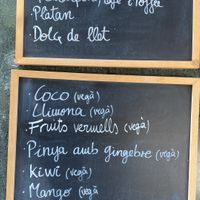 cafè i toffa
· Platan
· Dolç de llet
· Coco (vegà)
· Llimona (vegà)
· Fruits vermells (vegà)
· Pinya amb gingebre (vegà)
· Kiwi (vegà)
· Mango (vegà